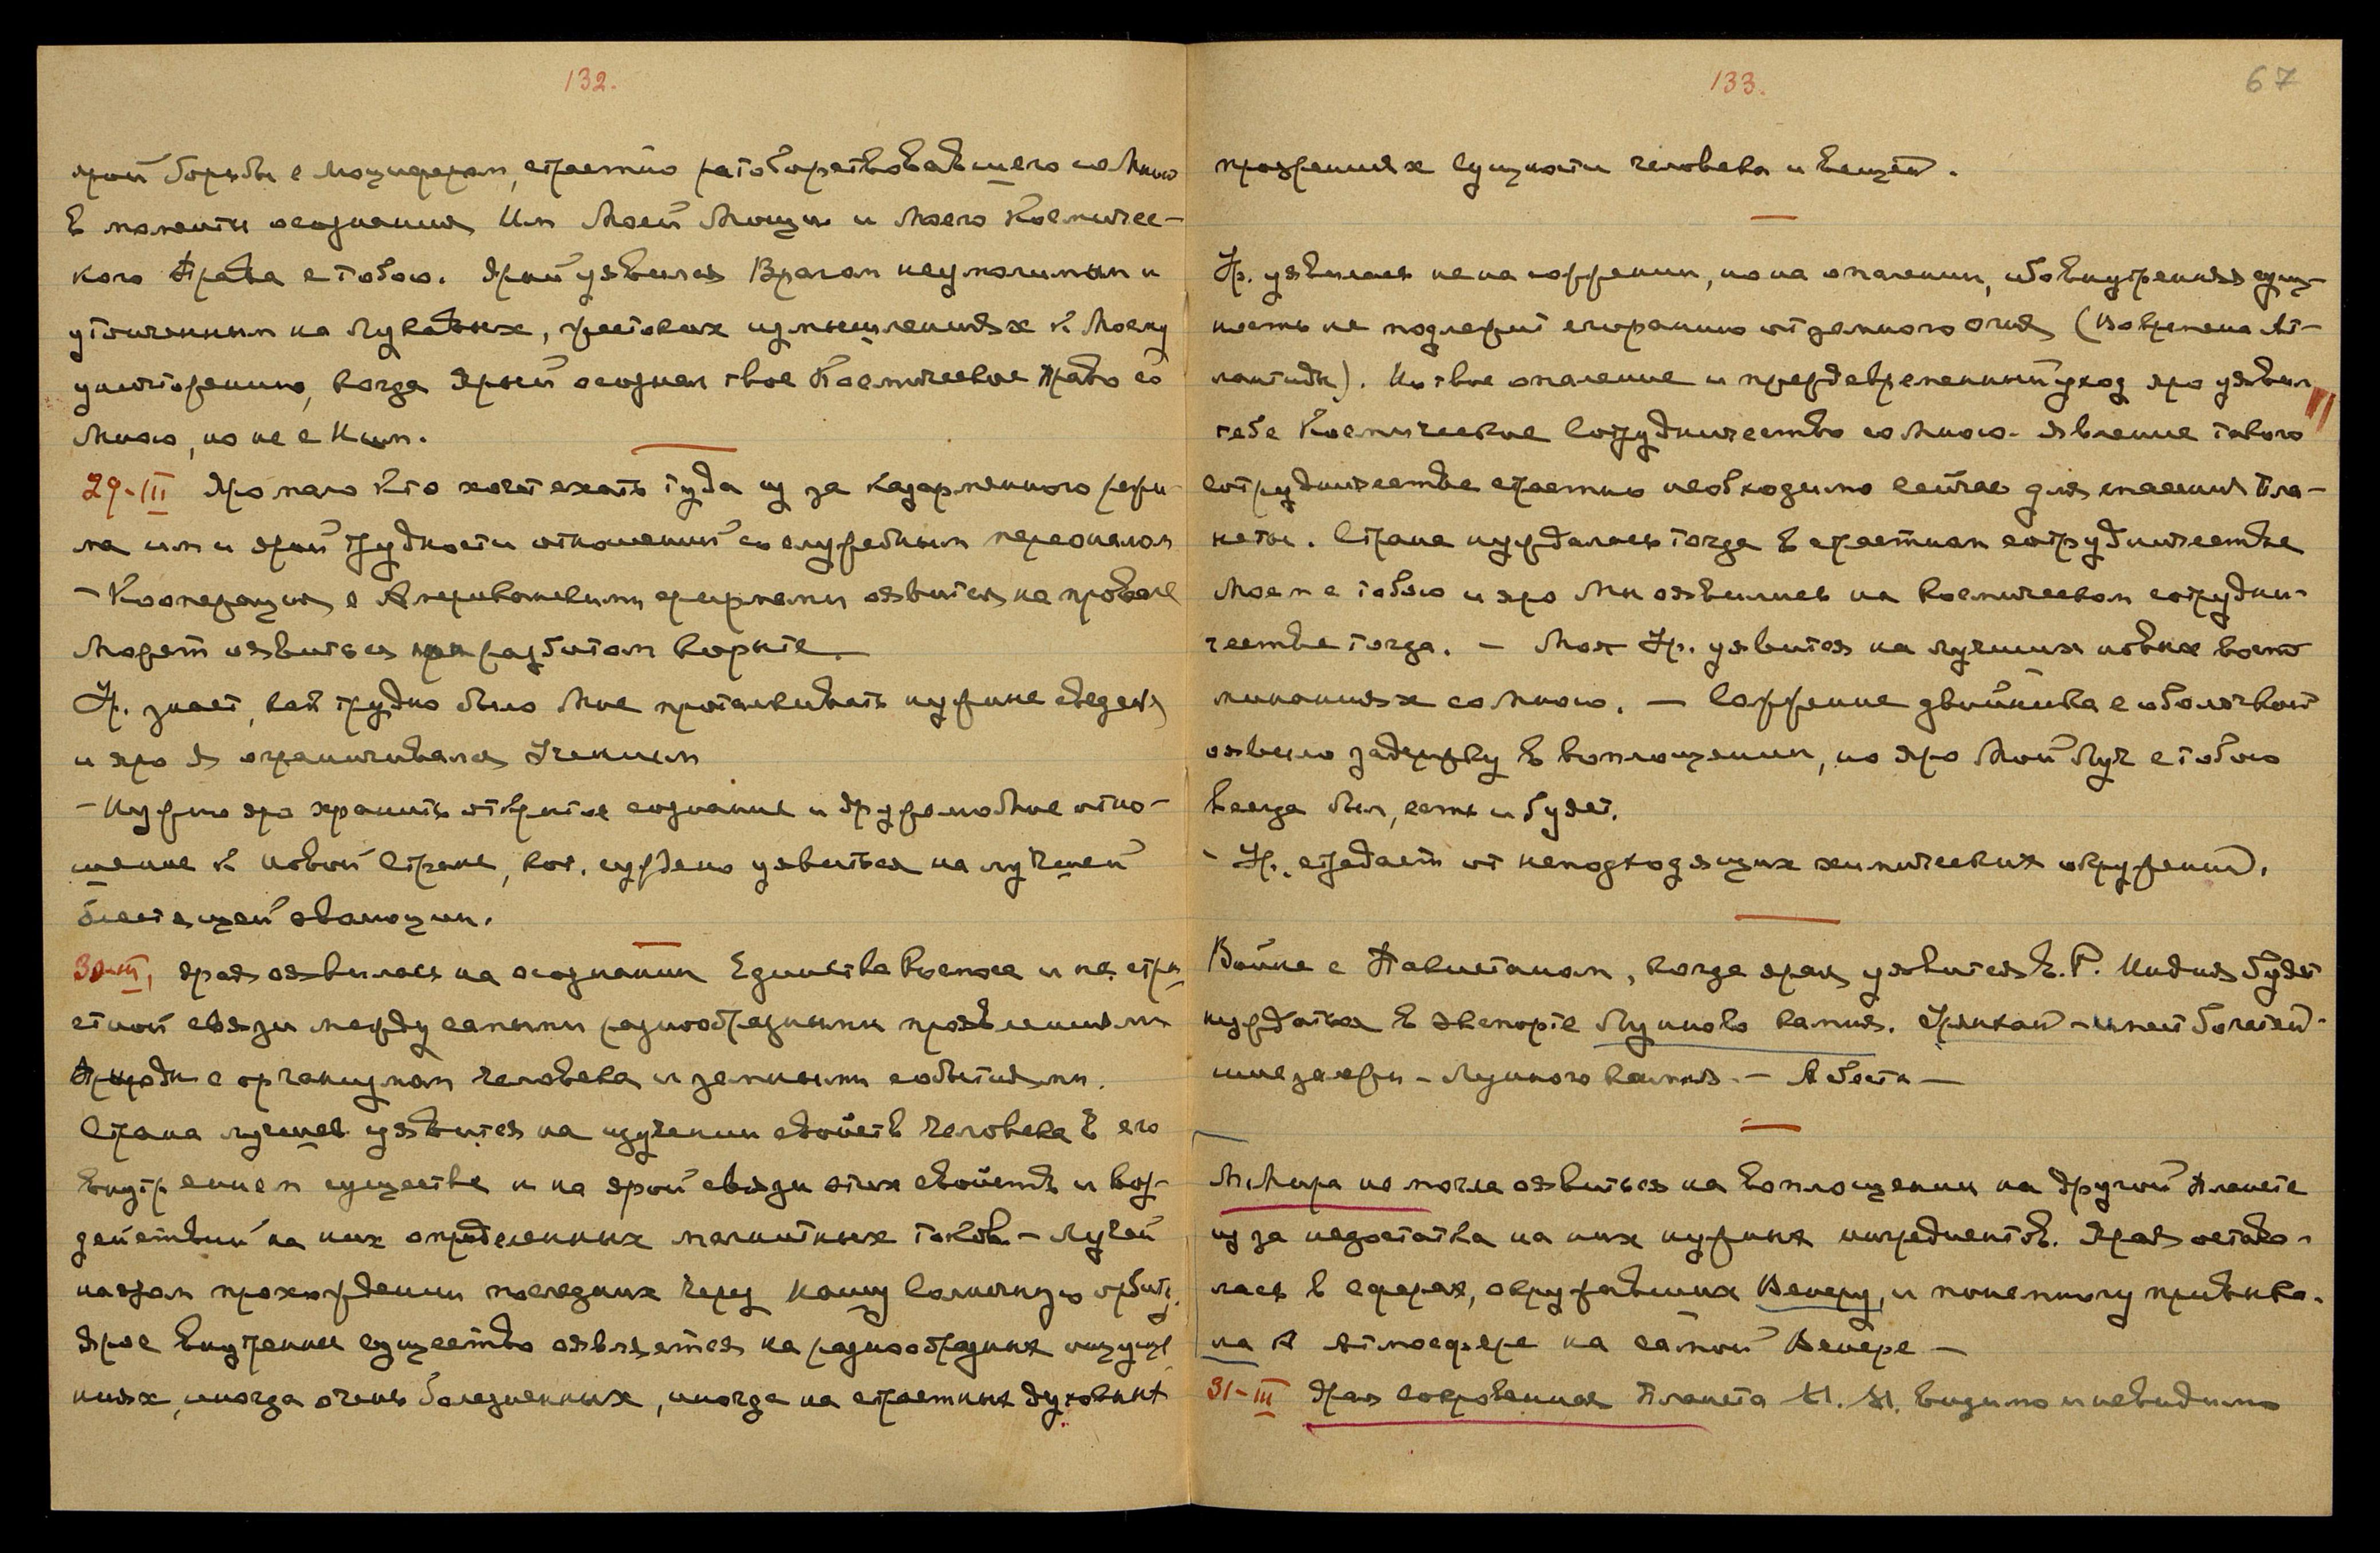 132.
ярой борьбы с Люцифером, страстно ратоборствовавшего со Мною
в моменты осознания Им Моей Мощи и Моего Космичес-
кого Права с тобою. Ярый уявился Врагом неумолимым и
утонченным на лукавых, жестоких измышлениях к Моему
уничтожению, когда Ярый осознал твое Космическое Право со
Мною, но не с Ним.
29-III Яро мало кто хочет ехать туда из за казарменного режи-
ма им и ярой трудности отношений со служебным персоналом
– Кооперация с Американскими фирмами оявится на провале
Может оявиться при разбитом корыте.
Ур. знает, как трудно было Мне проталкивать нужные сведения
и яро Я ограничивался Учением
– Нужно яро хранить открытое сознание и дружелюбное отно-
шение к новой Стране, кот. суждено уявиться на лучшей
блестящей эволюции.
30-III, ярая оявилась на осознании Единства Космоса и на стра-
стной связи между самыми разнообразными проявлениями
Природы с организмом человека и земными событиями.
Страна лучшая уявится на изучении свойств человека в его
внутреннем существе и на ярой связи этих свойств и воз-
действий на них определенных магнитных токов – лучей
назом прохождении последних через нашу солнечную орбиту.
Ярое внутреннее существо оявляется на разнообразных ощуще
ниях, иногда очень болезненных, иногда на страстных духовных
133.
67
прозрениях сущности человека и вещей.
Ур. уявилась не на сожжении, но на опалении, ибо внутренняя сущ-
ность не подлежит сгоранию от земного огня (Во времена Ат-
лантиды). Но твое опаление и преждевременный уход яро уявил
тебе Космическое Сотрудничество со Мною. Явление такого
сотрудничества страстно необходимо сейчас для спасения Пла-
неты. Страна нуждалась тогда в страстном сотрудничестве
Моем с тобою и яро Мы оявились на космическом сотрудни-
честве тогда. – Моя Ур. уявится на лучших новых воспо
минаниях со Мною. – Сожжение двойника с оболочкой
оявило задержку в воплощении, но яро Мой Луч с тобою
всегда был, есть и будет.
– Ур. страдает от неподходящих химических окружений.
Войне с Пакистаном, когда ярая уявится Н. Р. Индия будет
нуждаться в экспорте Лунного камня. Цейлон – имеет богатей-
шие залежи – Лунного камня. – Абоста –
М. Мира не могла оявиться на воплощении на другой Планете
из за недостатка на них нужных ингредиентов. Ярая остава-
лась в сферах, окружавших Венеру, и понемногу привыка-
ла к атмосфере на самой Венере –
31-III Ярая сокровенная Планета М. М. видимо и невидимо